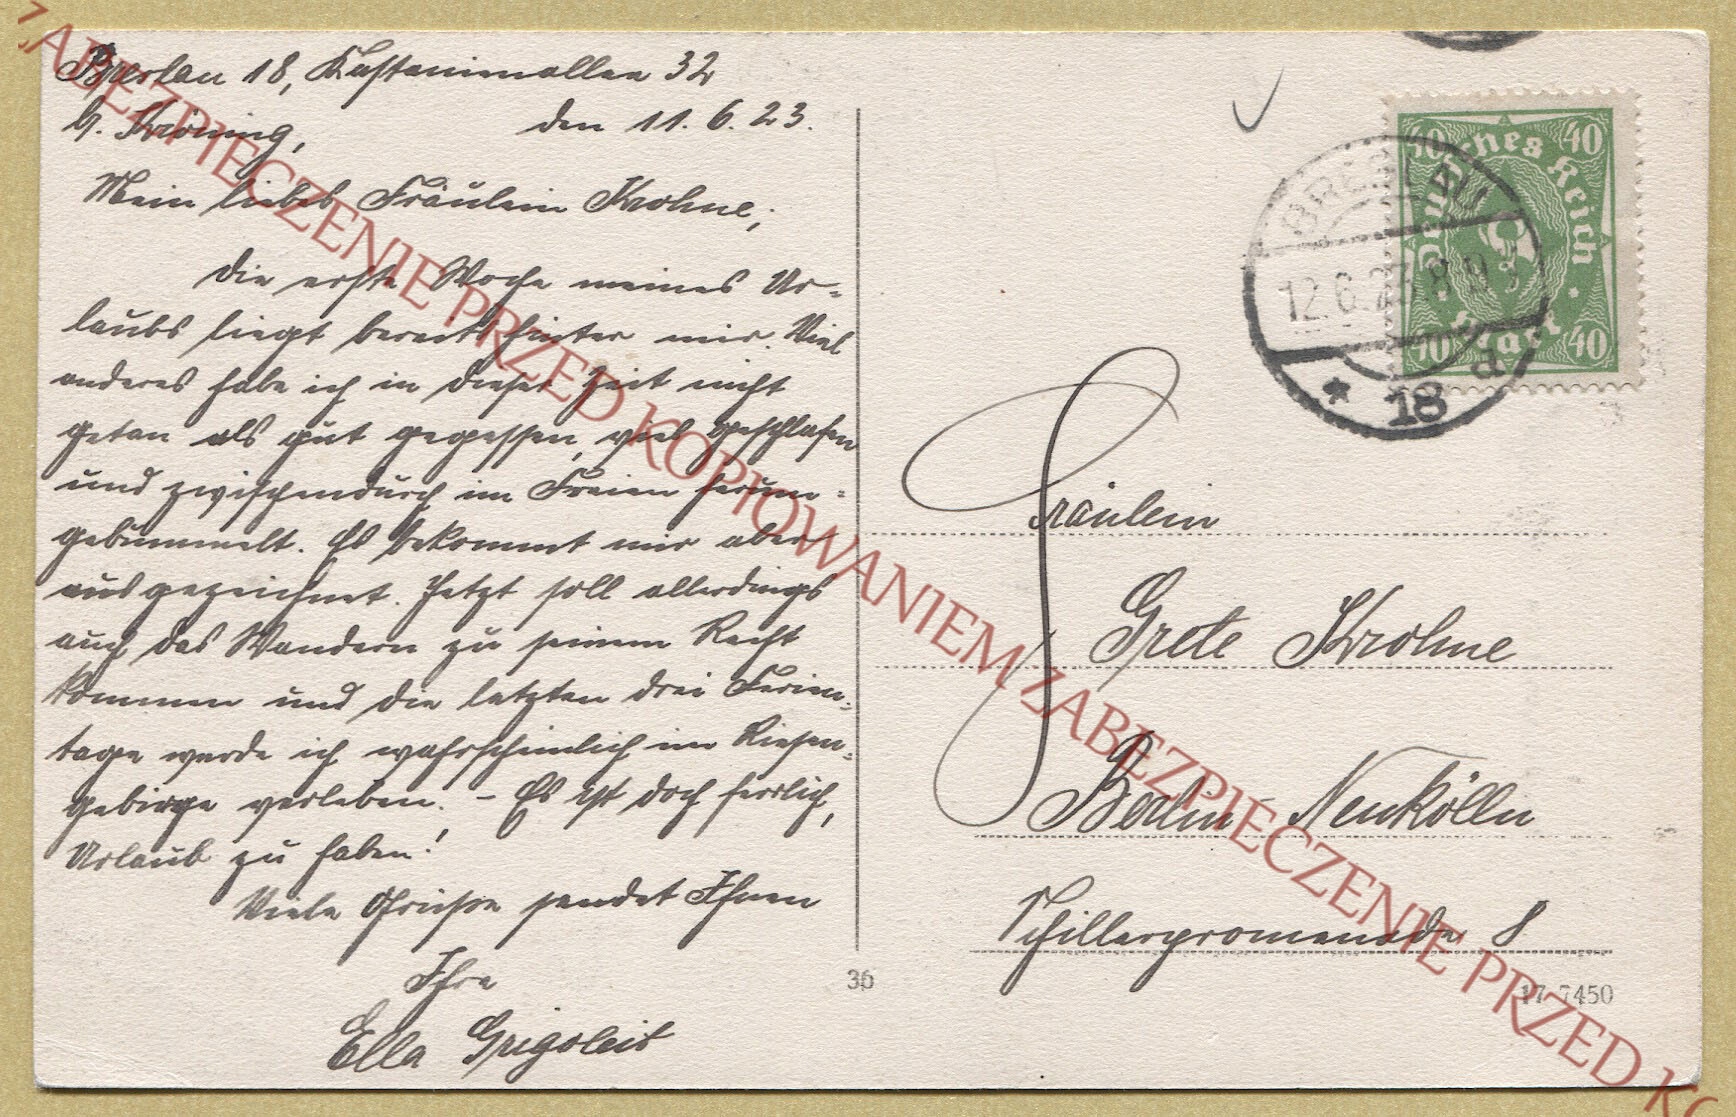 Breslau 18, Kastanienallee 32
b. Kröning,
den 11. 6. 23.
Mein liebes Fräulein Krohne,
Die erste Woche meines Ur-
laubs liegt bereits hinter mir. Viel
anderes habe ich in dieser Zeit nicht
getan als gut gegessen, viel geschlafen
und zwischendurch im Freien herum-
gebummelt. Es bekommt mir aber
ausgezeichnet. Jetzt soll allerdings
auch das Wandern zu seinem Recht
kommen und die letzten drei Ferien-
tage werde ich wahrscheinlich im Riesen-
gebirge verleben. – Es ist doch herrlich,
Urlaub zu haben!
Viele Grüsse sendet Ihnen
Ihre
Ella Grigoleit
36
Deutsches Reich
40 40
40 Mark 40
BRESLAU
12.6.23. 8-9
* 18 d
Fräulein
Grete Krohne
Berlin-Neukölln
Schillerpromenade 8
17 7450
ZABEZPIECZENIE PRZED KOPIOWANIEM ZABEZPIECZENIE PRZED KO